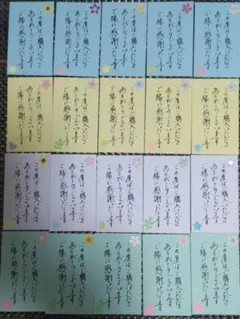 この度はご購入いただき
ありがとうございます
ご縁に感謝
この度はご購入いただき
ありがとうございます
ご縁に感謝
この度はご購入いただき
ありがとうございます
ご縁に感謝
この度はご購入いただき
ありがとうございます
ご縁に感謝
この度はご購入いただき
ありがとうございます
ご縁に感謝
この度はご購入いただき
ありがとうございます
ご縁に感謝
この度はご購入いただき
ありがとうございます
ご縁に感謝
この度はご購入いただき
ありがとうございます
ご縁に感謝
この度はご購入いただき
ありがとうございます
ご縁に感謝
この度はご購入いただき
ありがとうございます
ご縁に感謝
この度はご購入いただき
ありがとうございます
ご縁に感謝
この度はご購入いただき
ありがとうございます
ご縁に感謝
この度はご購入いただき
ありがとうございます
ご縁に感謝
この度はご購入いただき
ありがとうございます
ご縁に感謝
この度はご購入いただき
ありがとうございます
ご縁に感謝
この度はご購入いただき
ありがとうございます
ご縁に感謝
この度はご購入いただき
ありがとうございます
ご縁に感謝
この度はご購入いただき
ありがとうございます
ご縁に感謝
この度はご購入いただき
ありがとうございます
ご縁に感謝
この度はご購入いただき
ありがとうございます
ご縁に感謝